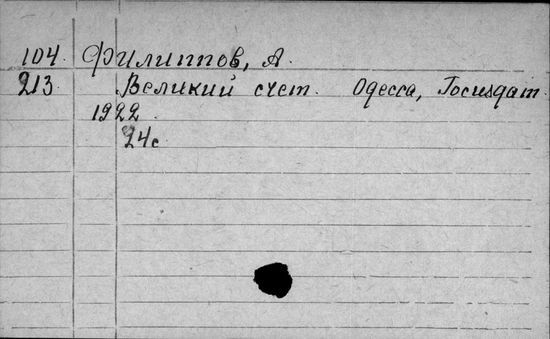 104. Филиппов, А.
213. Великий счет. Одесса, Госиздат.
1922.
24с